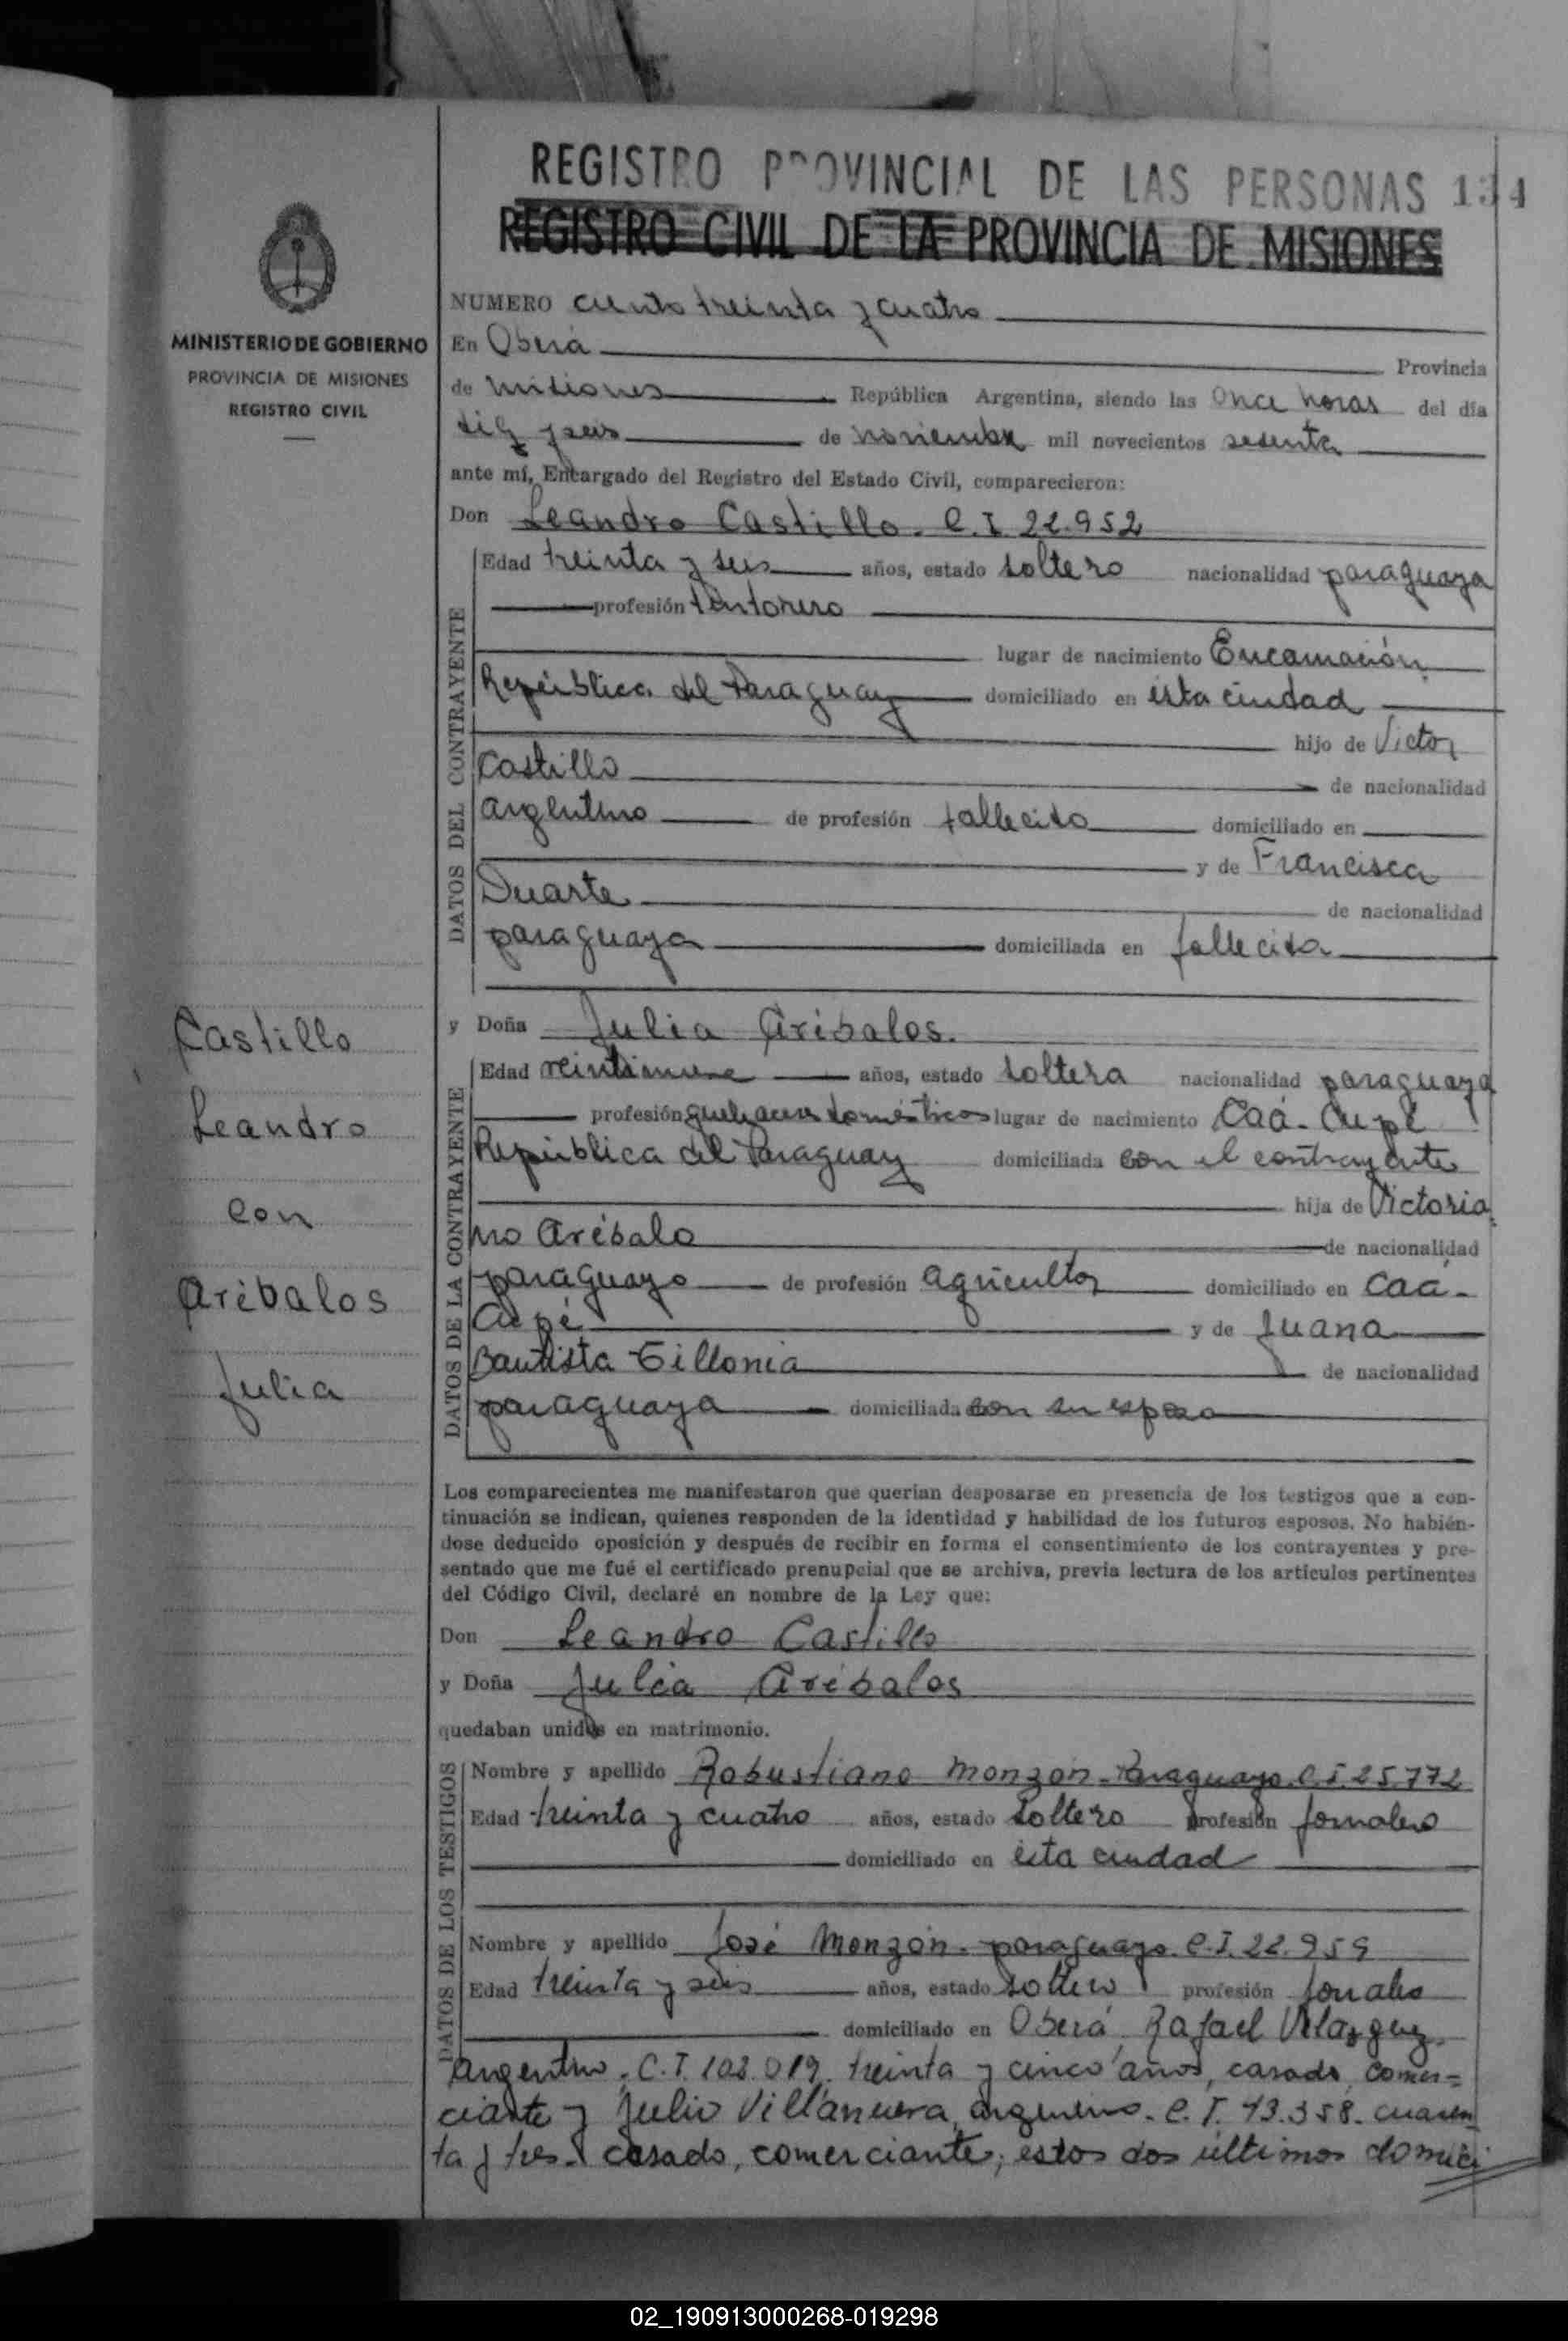 REGISTRO PROVINCIAL DE LAS PERSONAS 134
REGISTRO CIVIL DE LA PROVINCIA DE MISIONES
MINISTERIO DE GOBIERNO
PROVINCIA DE MISIONES
REGISTRO CIVIL
NUMERO ciento treinta y cuatro
En Oberá Provincia
de Misiones República Argentina, siendo las Once horas del día
diez y seis de noviembre mil novecientos sesenta
ante mí, Encargado del Registro del Estado Civil, comparecieron:
Don Leandro Castillo. C.I. 22.952
DATOS DEL CONTRAYENTE
Edad treinta y seis años, estado soltero nacionalidad paraguaya
profesión tintorero
lugar de nacimiento Encarnación
República del Paraguay domiciliado en esta ciudad
hijo de Victor
Castillo de nacionalidad
argentino de profesión fallecido domiciliado en
y de Francisca
Duarte de nacionalidad
paraguaya domiciliada en fallecida
y Doña Julia Arébalos.
DATOS DE LA CONTRAYENTE
Edad veintinueve años, estado soltera nacionalidad paraguaya
profesión quehaceres domésticos lugar de nacimiento Caá-Cupé
República del Paraguay domiciliada con el contrayente
hija de Victoria
no Arébalo de nacionalidad
paraguayo de profesión agricultor domiciliado en Caá-
Cupé y de Juana
Bautista Gillonia de nacionalidad
paraguaya domiciliada con su esposo
Castillo
Leandro
con
Arébalos
Julia
Los comparecientes me manifestaron que querían desposarse en presencia de los testigos que a con-
tinuación se indican, quienes responden de la identidad y habilidad de los futuros esposos. No habién-
dose deducido oposición y después de recibir en forma el consentimiento de los contrayentes y pre-
sentado que me fué el certificado prenupcial que se archiva, previa lectura de los artículos pertinentes
del Código Civil, declaré en nombre de la Ley que:
Don Leandro Castillo
y Doña Julia Arébalos
quedaban unidos en matrimonio.
DATOS DE LOS TESTIGOS
Nombre y apellido Robustiano Monzón-Paraguayo. C.I. 25.772
Edad treinta y cuatro años, estado soltero profesión jornalero
domiciliado en esta ciudad
Nombre y apellido José Monzón. paraguayo. C.I. 22.959
Edad treinta y seis años, estado soltero profesión jornalero
domiciliado en Oberá, Rafael Velazquez,
Argentino, C.I. 102.019. treinta y cinco años, casado, comer=
ciante y Julio Villanueva, argentino. C.I. 13.358. cuaren
ta y tres. casado, comerciante; estos dos últimos domici
02_190913000268-019298